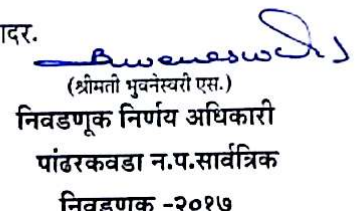 ादर.
Bwaneswari S
(श्रीमती भुवनेस्वरी एस.)
निवडणूक निर्णय अधिकारी
पांढरकवडा न.प.सार्वत्रिक
निवडणूक -२०१७